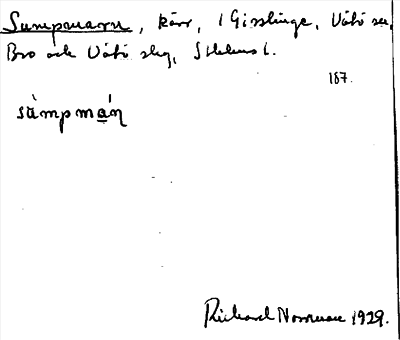 Sumpmarn, kärr, i Gisslinge, Vätö sn,
Bro och Vätö skg, Sthlms l.
187.
sùmpmán
Richard Norrman 1929.